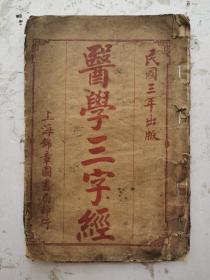 民國三年出版
醫學三字經
上海錦章圖書局印行